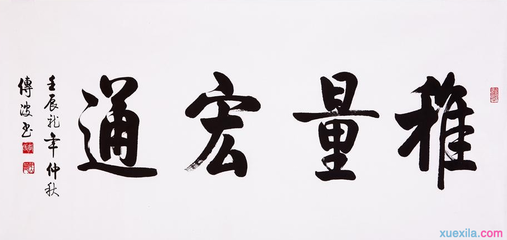 雅量宏通
壬辰龙年仲秋
傅波书
xuexila.com